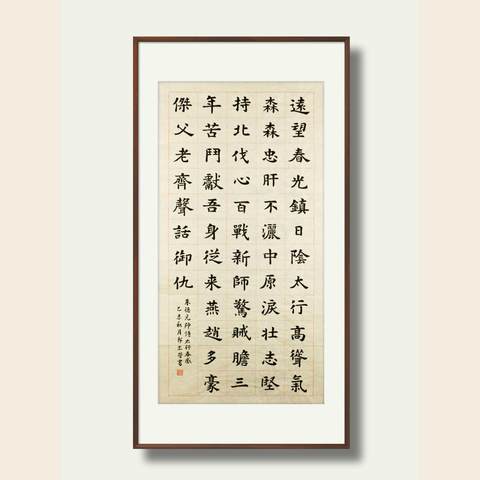 遠望春光鎮日陰太行高聳氣
森森忠肝不灑中原淚壯志堅
持北伐心百戰新師驚賊膽三
年苦鬥獻吾身從来燕趙多豪
傑父老齊聲話御仇
朱德元帥詩太行春感
秋月
書